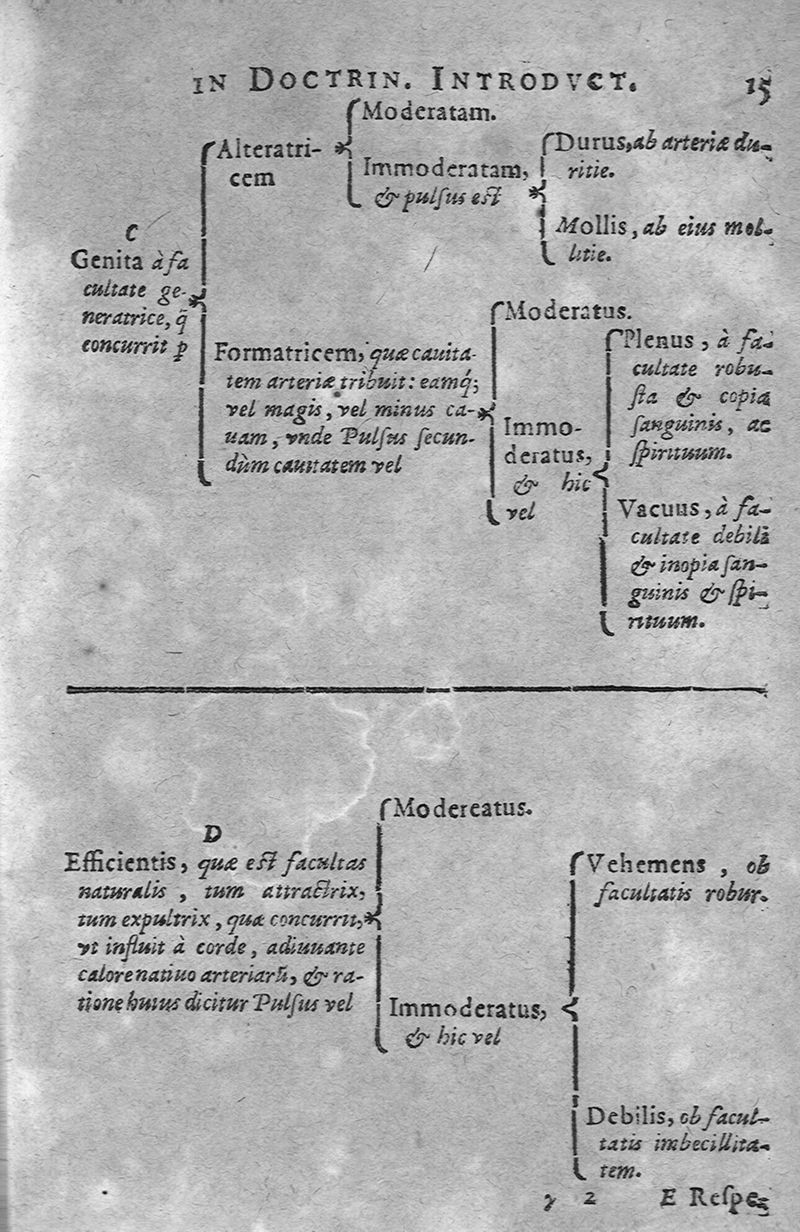 IN DOCTRIN. INTRODVCT. 15
C
Genita à fa
cultate ge-
neratrice, q̃
concurrit ꝑ
Alteratri-
cem
Moderatam.
Immoderatam,
& pulſus eſt
Durus, ab arteriæ du-
ritie.
Mollis, ab eius mol-
litie.
Formatricem, quæ cauita-
tem arteriæ tribuit: eamq́;
vel magis, vel minus ca-
uam, vnde Pulſus ſecun-
dùm cauitatem vel
Moderatus.
Immo-
deratus,
& hic
vel
Plenus, à fa-
cultate robu-
ſta & copia
ſanguinis, ac
ſpirituum.
Vacuus, à fa-
cultate debili
& inopia ſan-
guinis & ſpi-
rituum.
D
Efficientis, quæ eſt facultas
naturalis, tum attractrix,
tum expultrix, quæ concurrit,
vt influit à corde, adiuuante
calore natiuo arteriarũ, & ra-
tione huius dicitur Pulſus vel
Modereatus.
Immoderatus,
& hic vel
Vehemens, ob
facultatis robur.
Debilis, ob facul-
tatis imbecillita-
tem.
γ 2 E Reſpe-